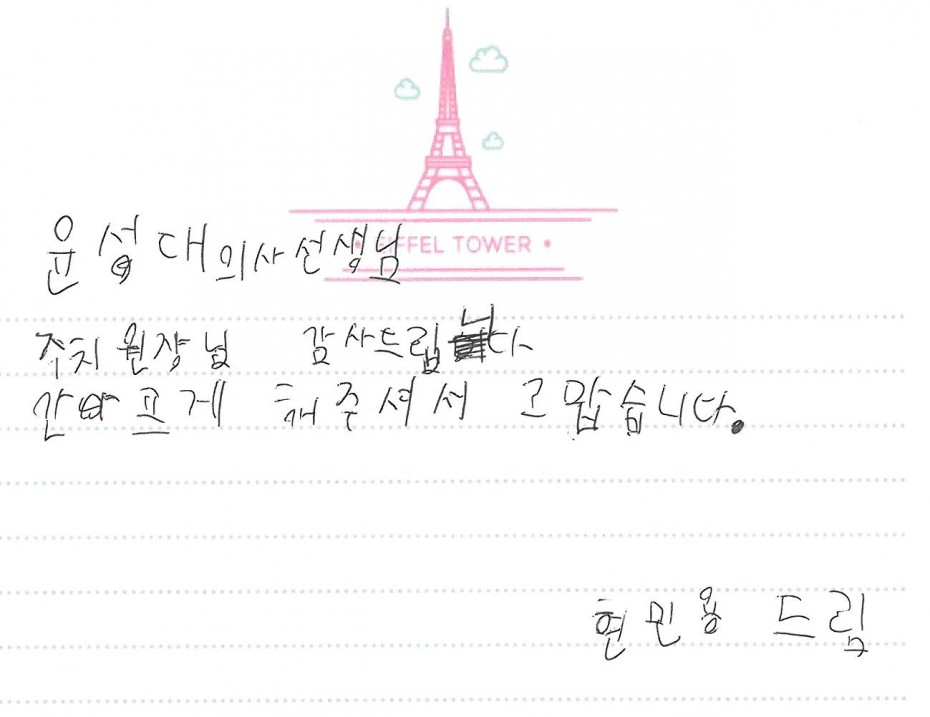 윤성대의사선생님
EIFFEL TOWER
주치원장님 감사드립니다
안아프게 해주셔서 고맙습니다.
현민용 드림